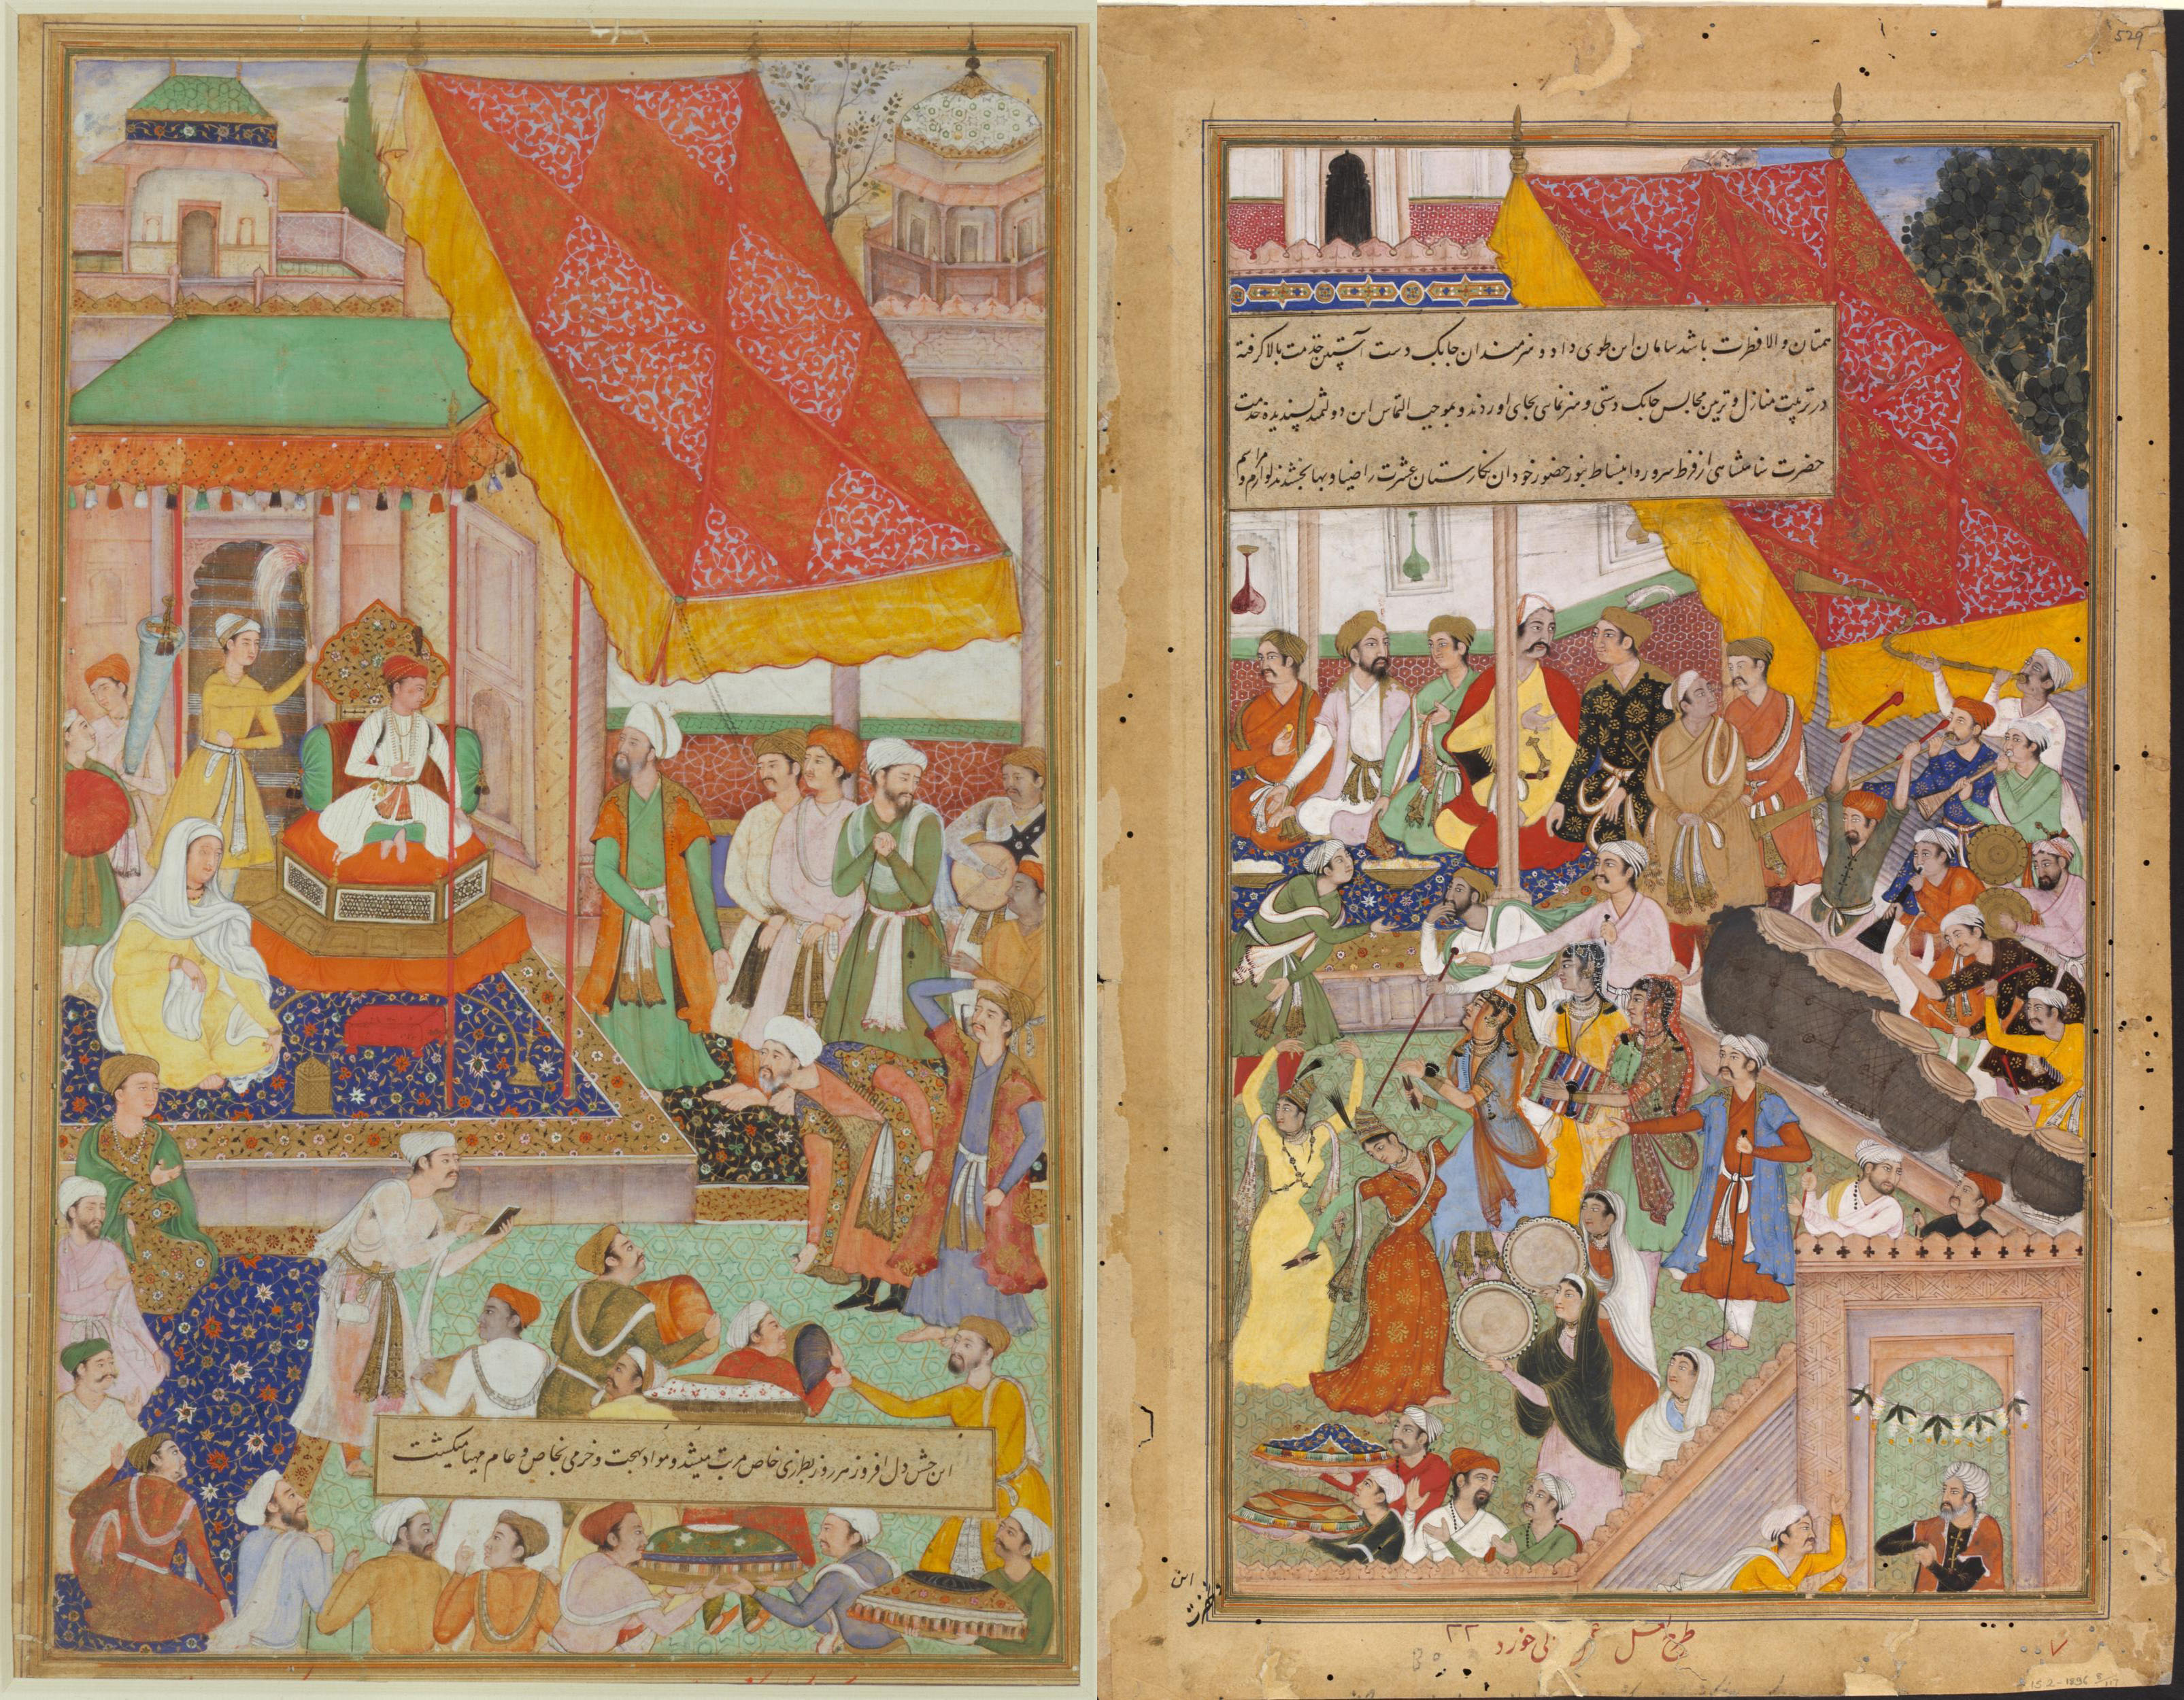 این جشن دل افروز هر روز بطرزی خاص مرتب میشد و مواد بهجت و خرمی بخاص و عام مهیا میکشت
529
همتان والا فطرت باشد سامان این طوی داد و هنرمندان جابک دست آستین خدمت بالا کرفته
در ترتیب منازل و تزیین مجالس جابک دستی و هنرنمایی بجای اوردند و بموجب التماس این دولتمند پسندیده خدمت
حضرت شاهنشاهی از فرط سرور و انبساط بنور حضور خود ان نکارستان عشرت را ضیا و بها بخشیدند لوازم و مراسم
این
طرح لعل
۲۲
IS.2-1896 8/117